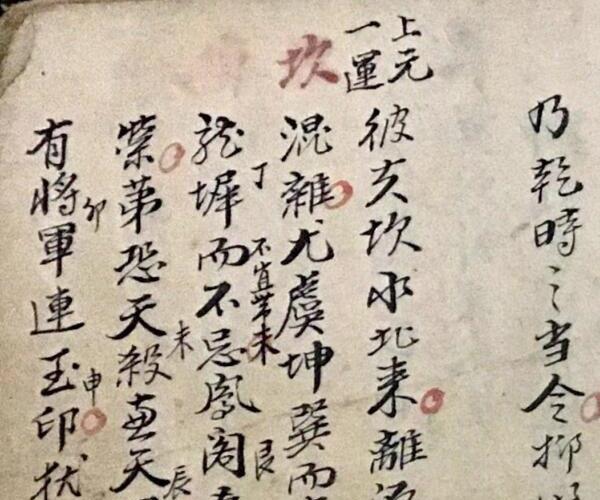 乃乾時之当令抑
上元
一運
彼亥坎水北来離
坎
混雜尤虞坤巽而
丁
不宜单未
龍墀而不忌鳳阁
艮
荣第恐天殺兼天
未
辰
有將軍連玉印
卯
申